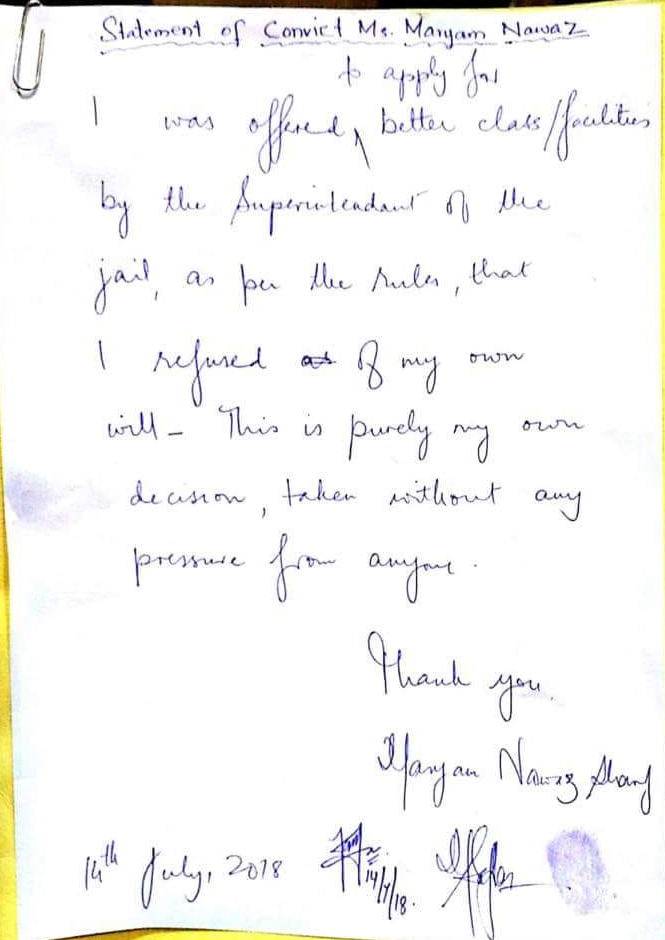 Statement of Convict Ms. Maryam Nawaz
to apply for
I was offered, better class/facilities
by the Superintendant of the
jail, as per the rules, that
I refused of my own
will - This is purely my own
decision, taken without any
pressure from anyone.
Thank you.
Maryam Nawaz Sharif
14th July, 2018
14/7/18.